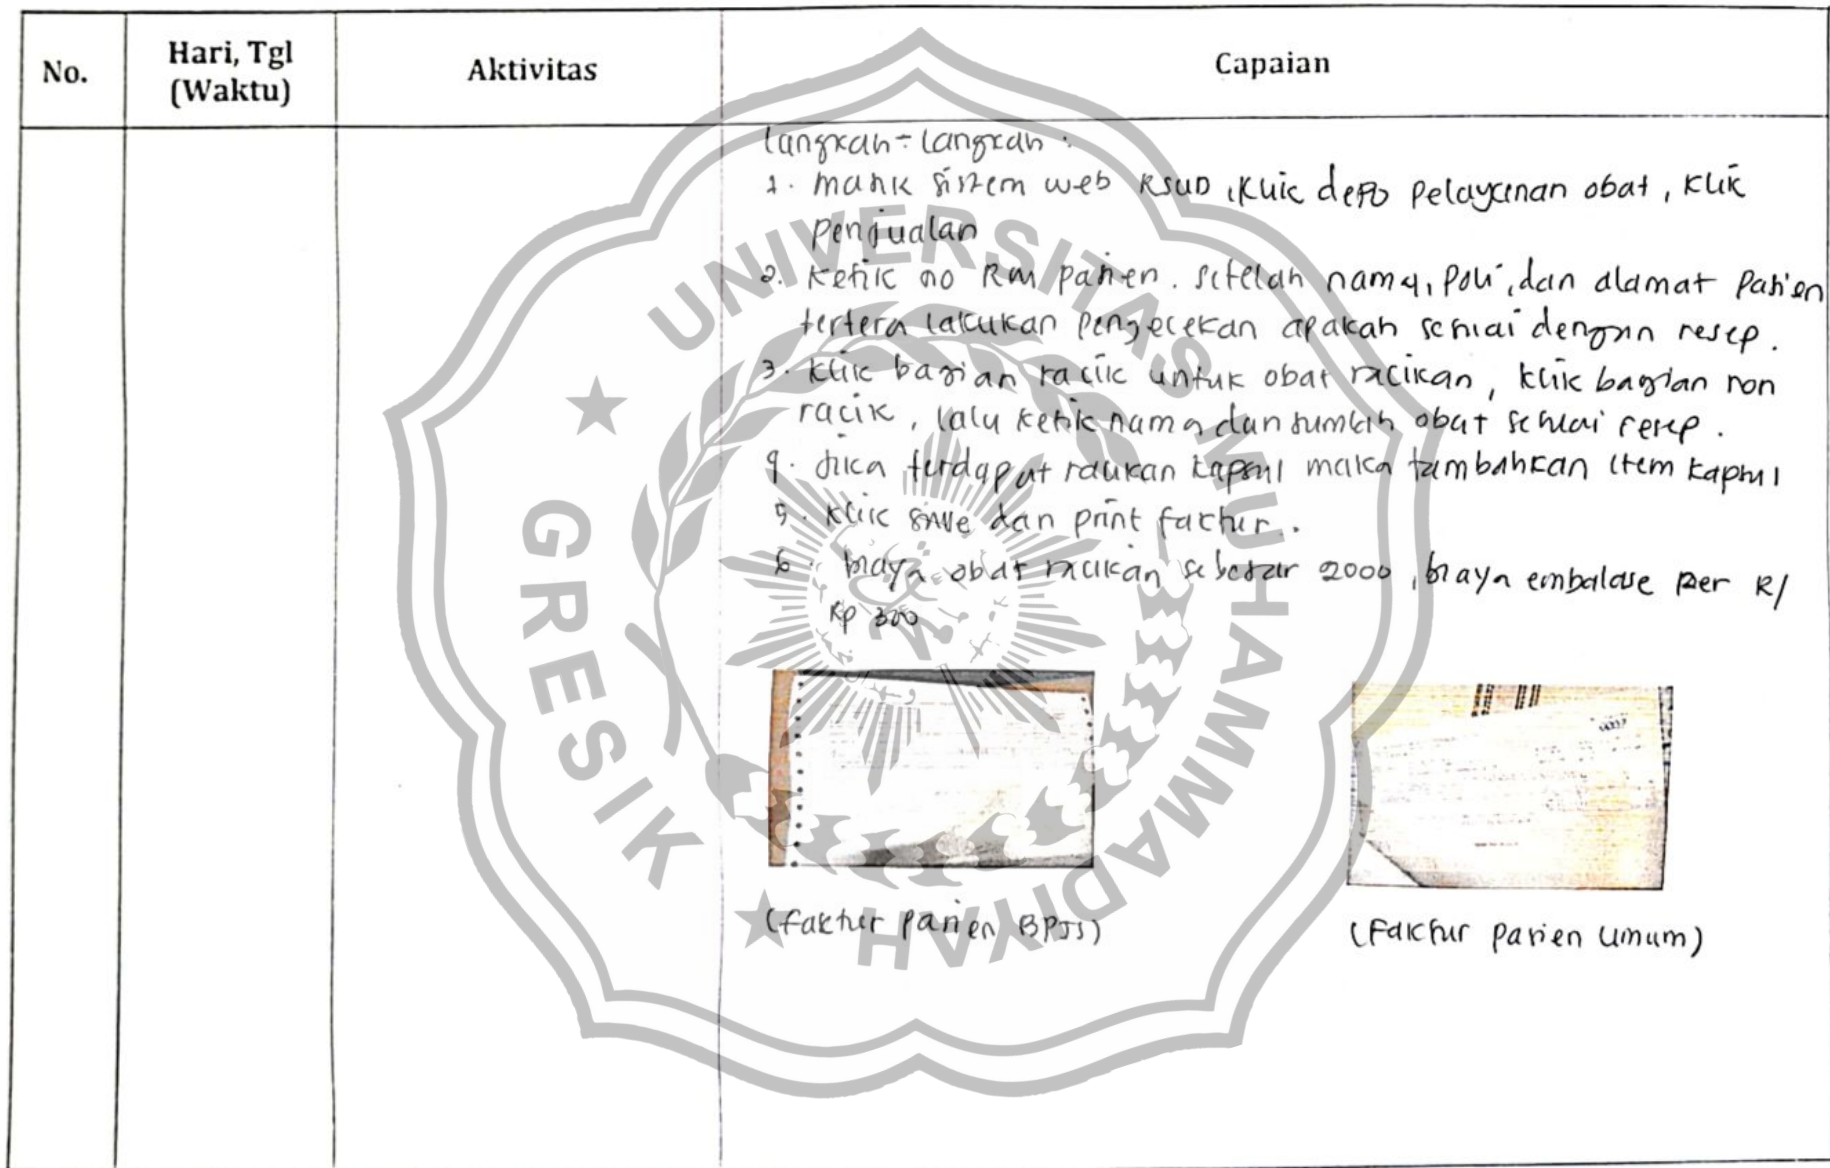 No.
Hari, Tgl
(Waktu)
Aktivitas
Capaian
Langkah-langkah :
1. masuk sistem web RSUD, klik depo pelayanan obat, klik
penjualan
2. ketik no RM pasien. setelah nama, poli, dan alamat pasien
tertera lakukan pengecekan apakah sesuai dengan resep.
3. klik bagian racik untuk obat racikan, klik bagian non
racik, lalu ketik nama dan jumlah obat sesuai resep.
4. jika terdapat racikan kapsul maka tambahkan item kapsul
5. klik save dan print faktur.
6. biaya obat racikan sebesar 2000, biaya embalase per R/
Rp 300
(faktur pasien BPJS)
(Faktur pasien umum)
UNIVERSITAS MUHAMMADIYAH
GRESIK